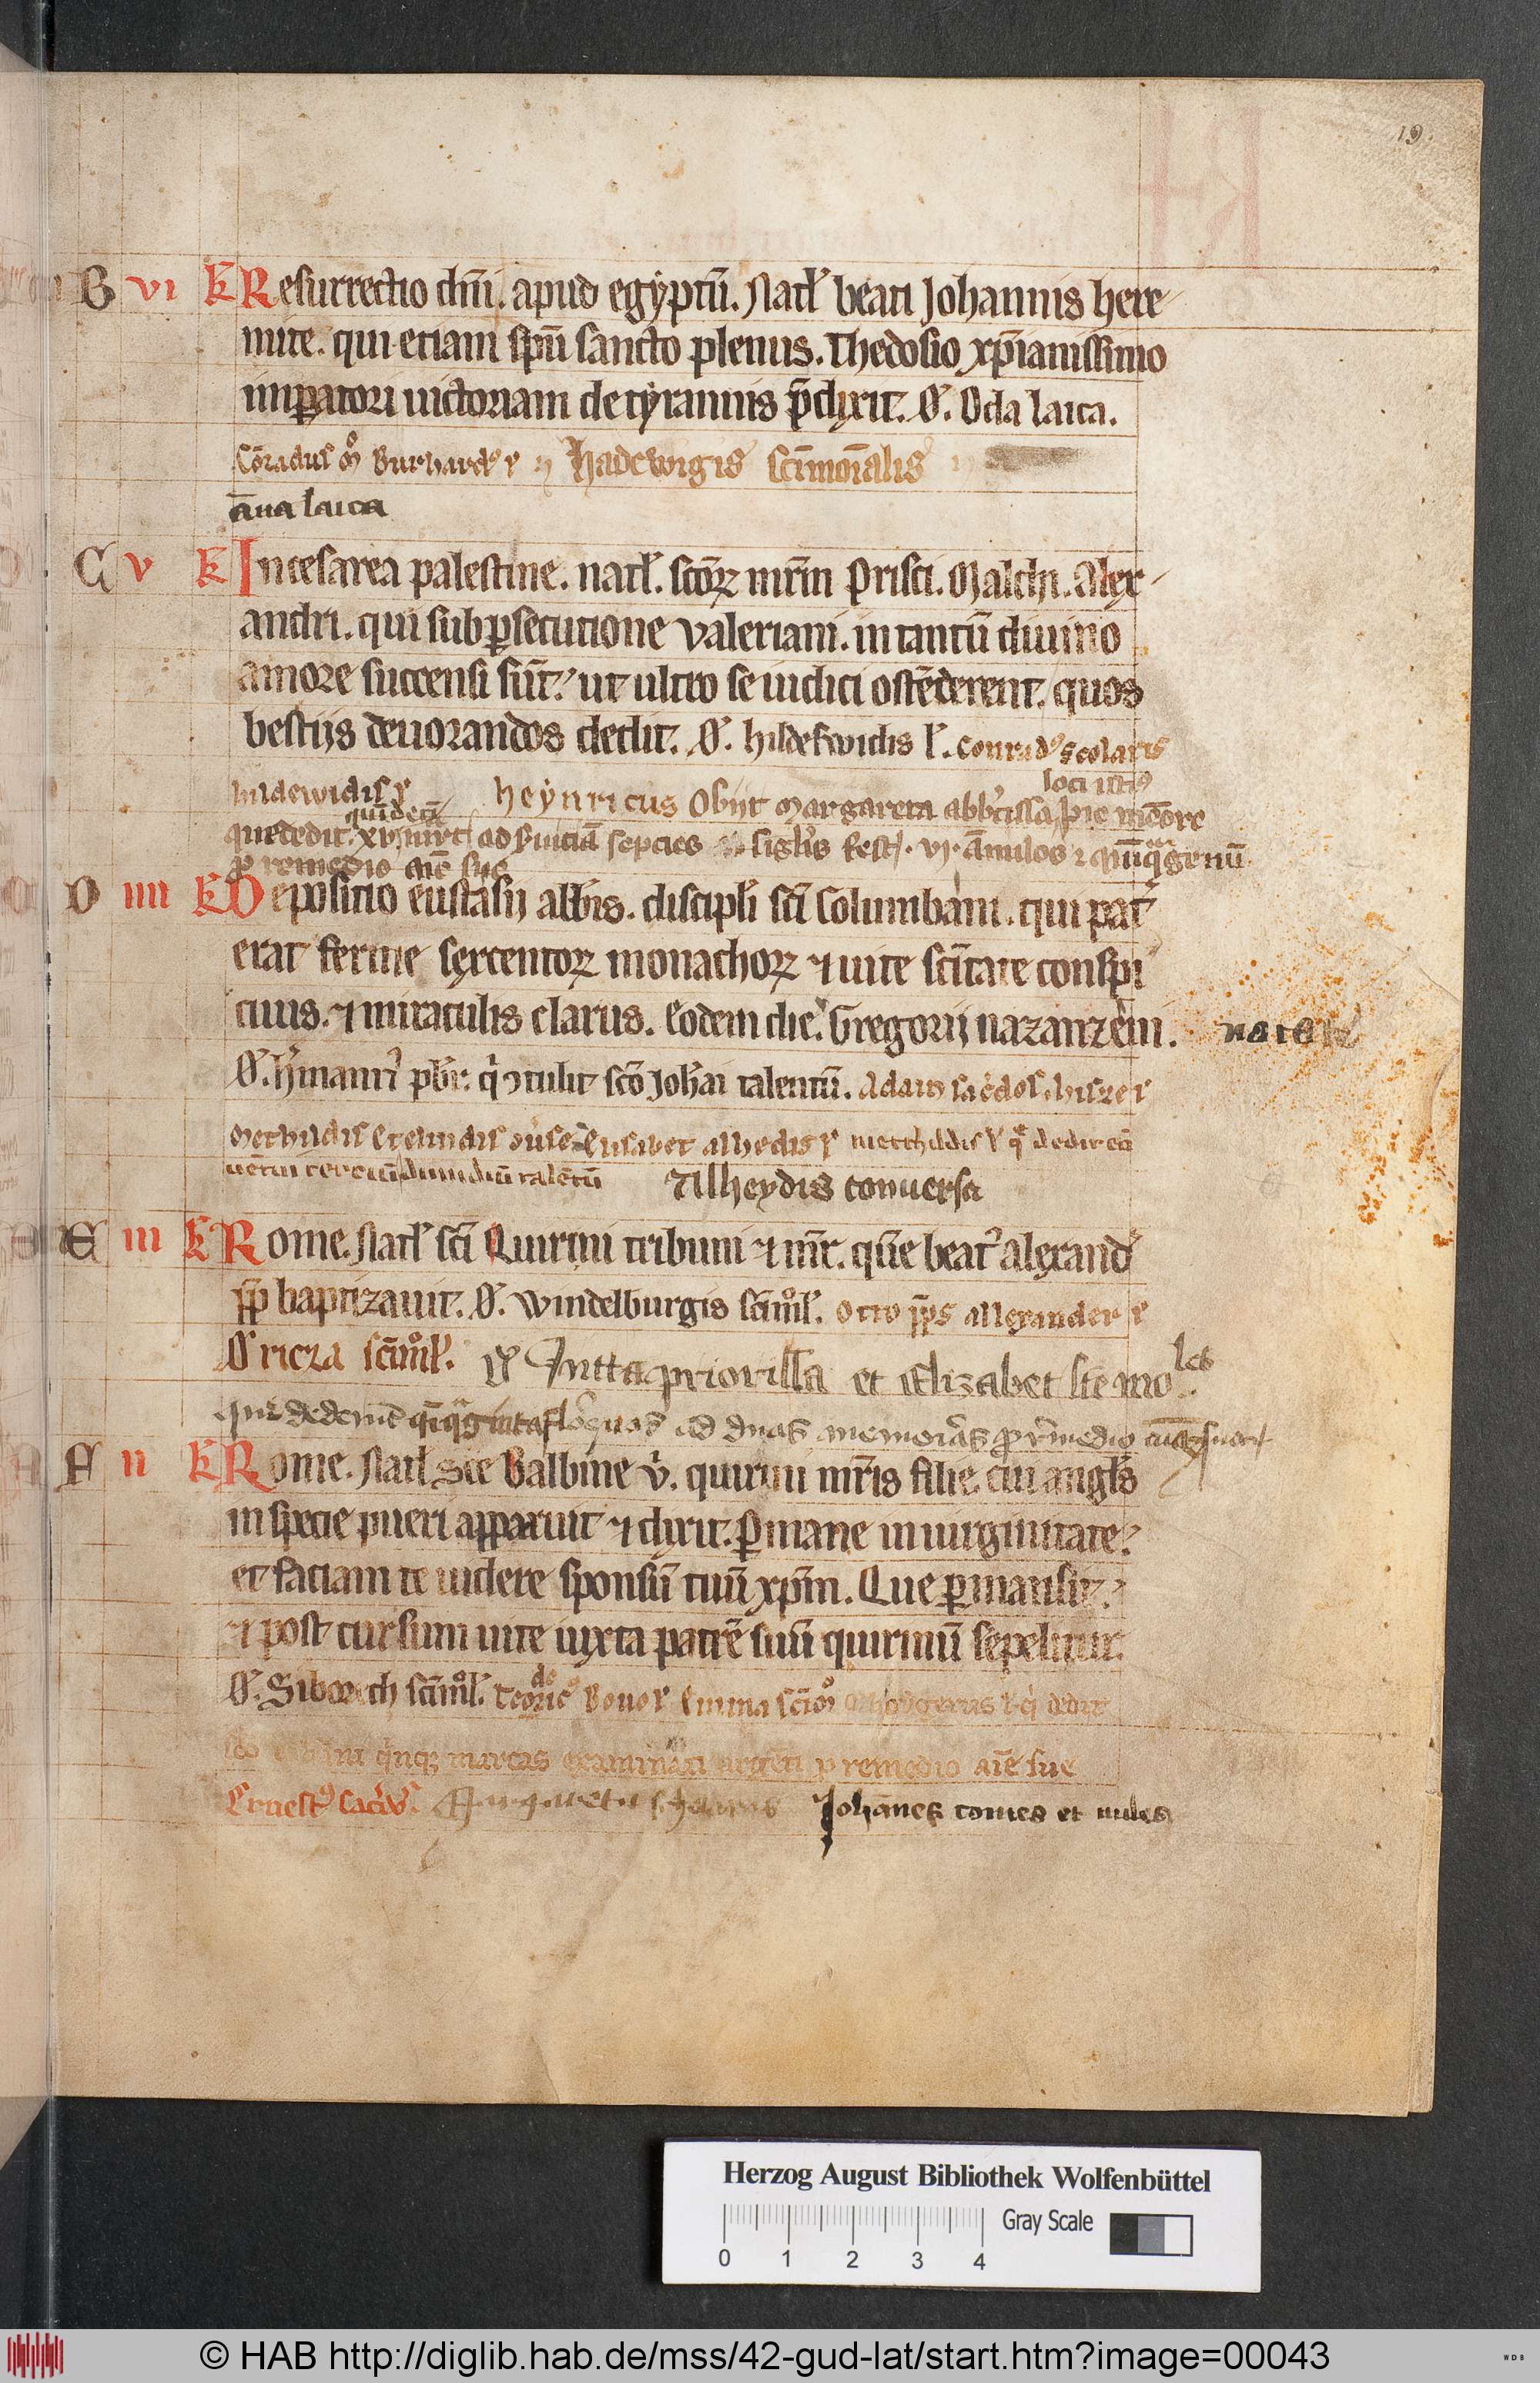 19.
B vi K Resurrectio dn̄i. apud egyptū. Natł beati Johannis here-
mite. qui etiam spū sancto plenus. Thedosio xp̄ianissimo
imꝑatori uictoriam de tyrannis p̄dixit. O'. Oda laica.
Cōradus Burhard' Hadewigis sc̄imōialis
āna laica
C v K In cesarea palestine. natł. sc̄oꝝ mr̄m Prisci. Malchi. Alex-
andri. qui sub ꝑsecutione Valeriani. in tantū diuino
amore succensi sūt. ut ultro se iudici ostēderent. quos
bestiis deuorandos dedit. O'. hildeswidis l'. Conrad' scolaris
loci isti9
heynricus Obiit Margareta abb'tissa pie mēore
que dedit xv ad sepcies sigł's fest vi. ānulos ⁊
ꝓ remedio aīe sue
D iiii K Depositio eustasii abb'is. discipłi sc̄i Columbani. qui pat'
erat ferme sexcentoꝝ monachoꝝ ⁊ uite sc̄itate conspi
cuus. ⁊ miraculis clarus. Eodem die. Gregorii nazanzeni.
O'. h'manni pb'r. q̄ ꝯtulit sc̄o Joh'ai talentū. Adam sac'dos
Methildis Elisabet alhedis metthildis q̄ dedit
dimidiū talētū Alheydis conuersa
E iii K Rome. Natł sc̄i Quirini tribuni ⁊ mr̄. quē beat9 alexand'
pp̄ baptizauit. O'. Windelburgis sc̄imōł. Otto pp̄s allexander
O' ricza sc̄imōł. Jutta priorissa et Elizabet sc̄emo les
que dederūt ad duas memorias ꝓ r'medio
F ii K Rome. Natł sc̄e Balbine v'. quirini mr̄is filie. cui angł's
in specie pueri apparuit ⁊ dixit. ꝑmane in uirginitate.
et faciam te uidere sponsū tuū xp̄m. Que ꝑmansit.
⁊ post cursum uite iuxta patrē suū quirinū sepelitur.
O'. Siborch sc̄imōł. Teoric9 Bouo Emma sc̄imō q̄ dedit
q̄nq; marcas argēti ꝓ remedio aīe sue
Ernest9 sac'd's. Margareta Johānes comes et miles
Herzog August Bibliothek Wolfenbüttel
Gray Scale
0 1 2 3 4
© HAB http://diglib.hab.de/mss/42-gud-lat/start.htm?image=00043
WDB